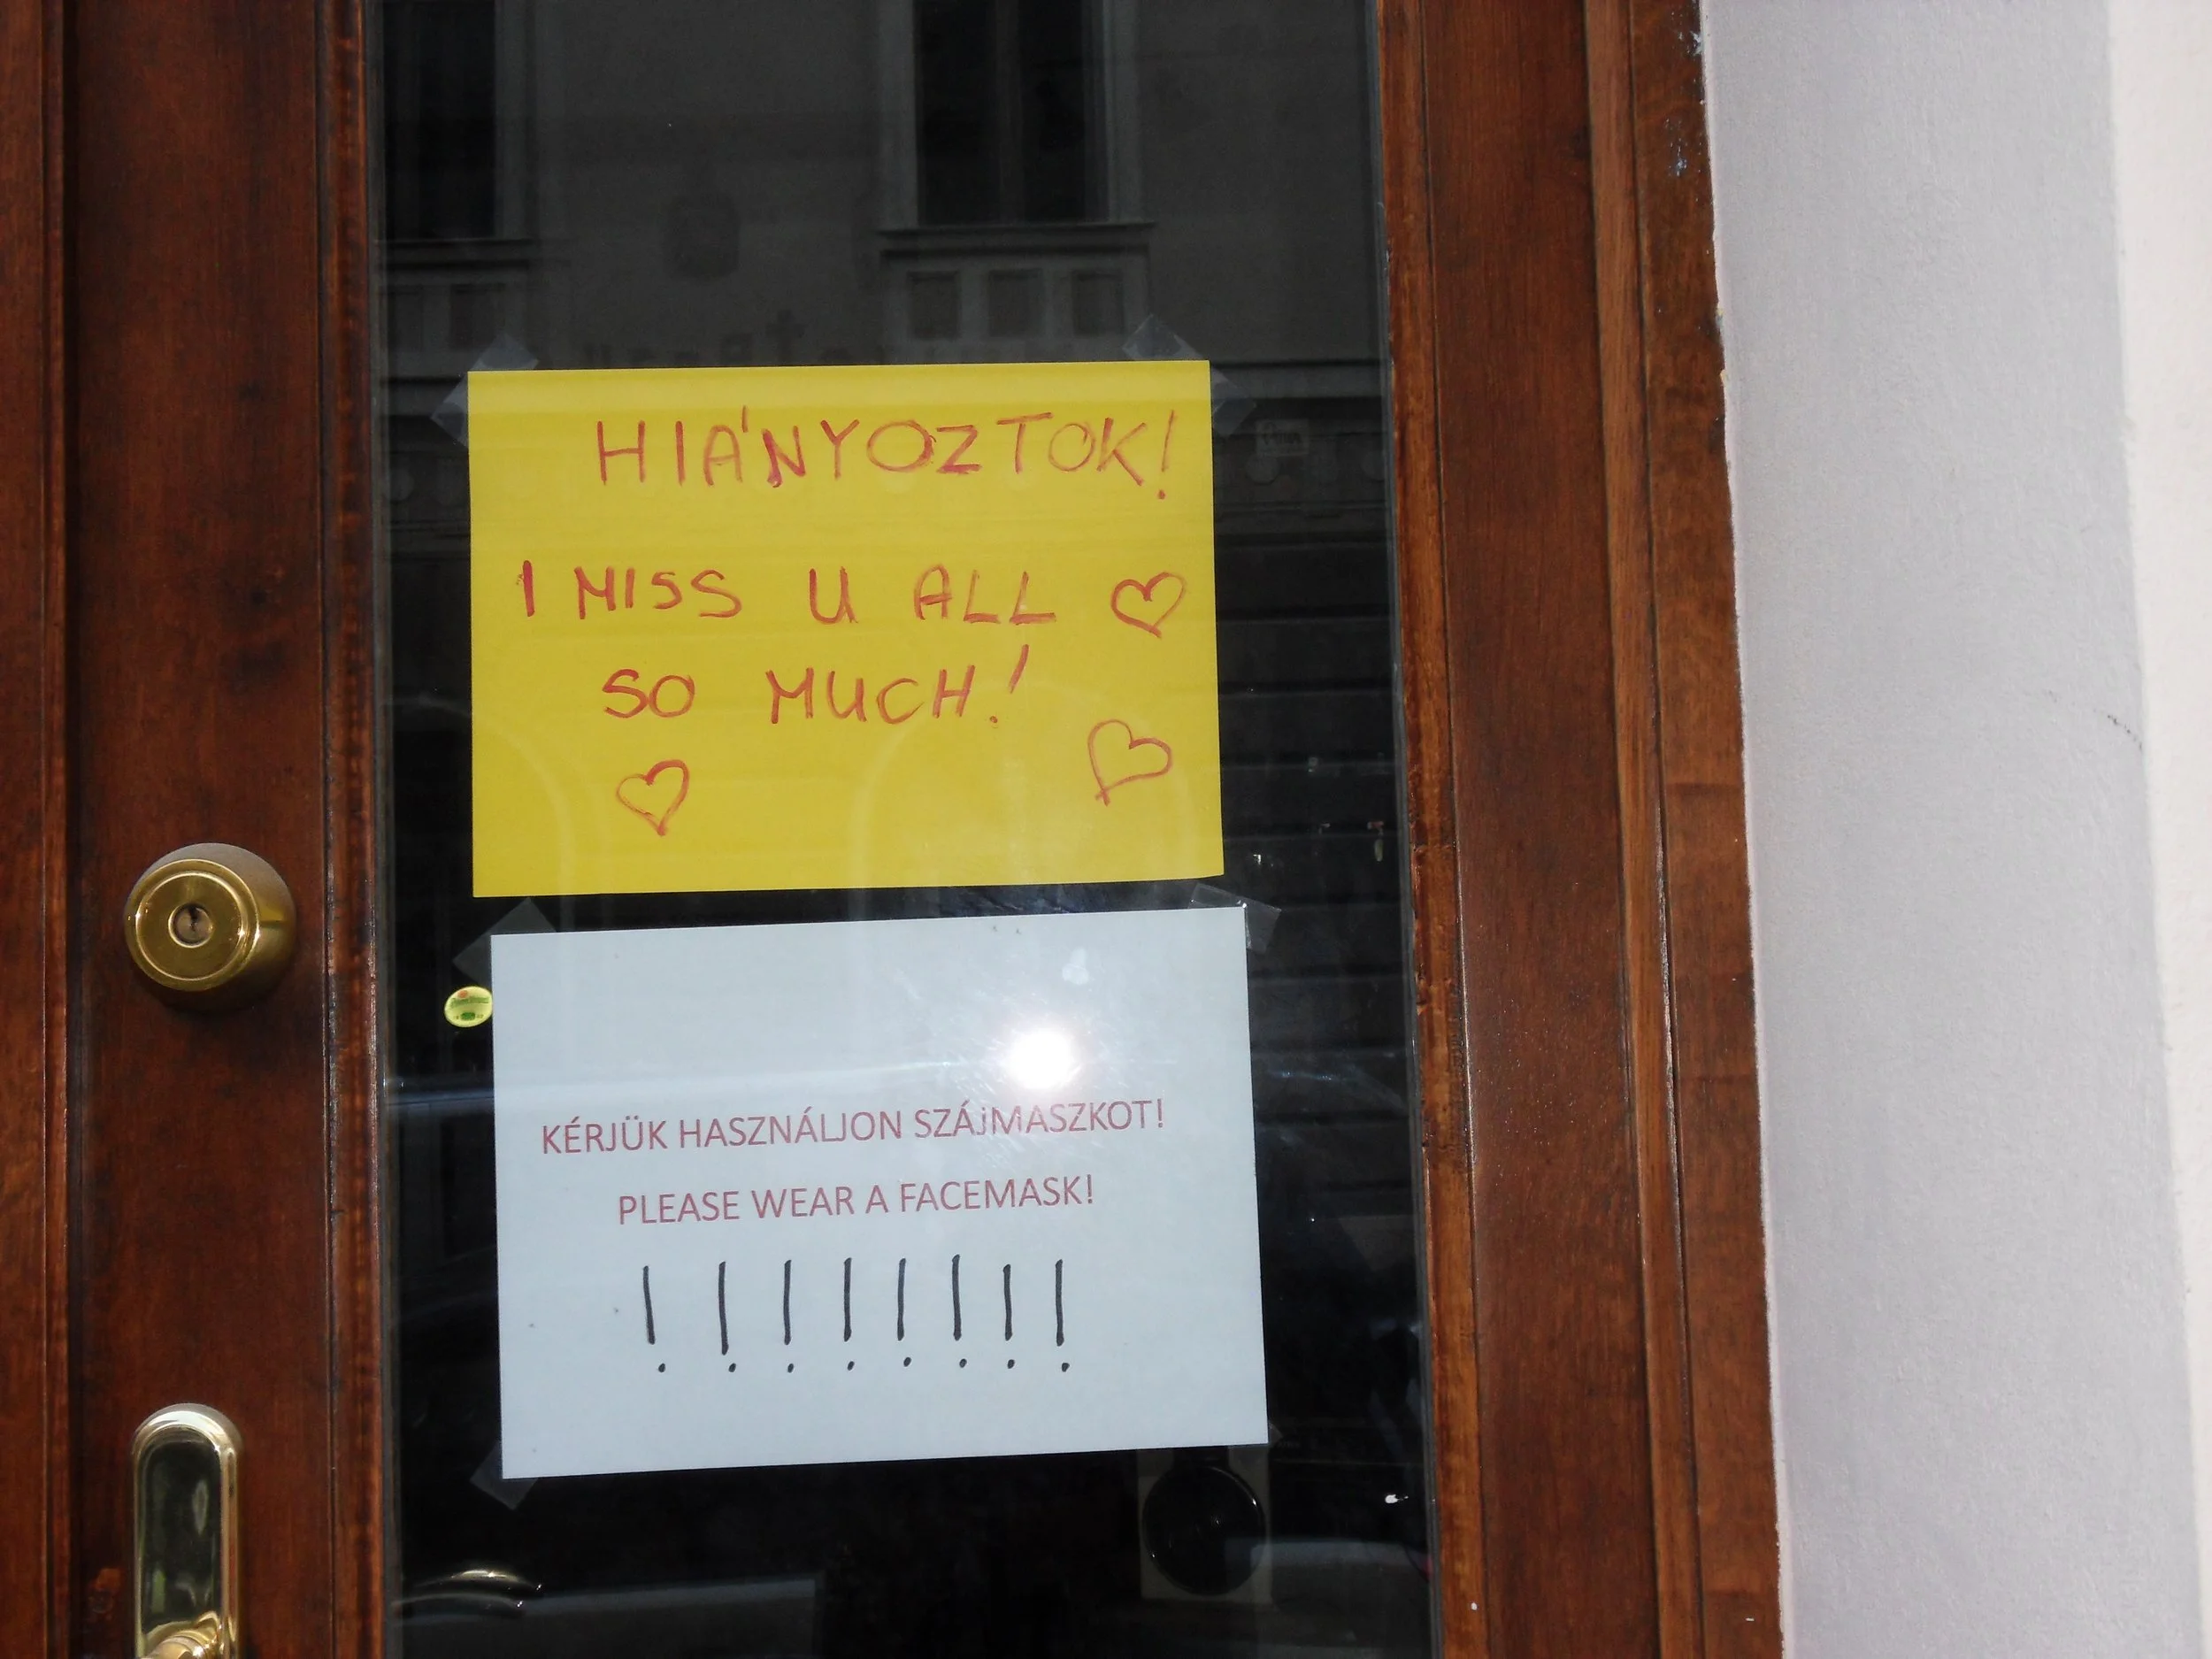 HIÁNYOZTOK!
I MISS U ALL ♡
SO MUCH!
KÉRJÜK HASZNÁLJON SZÁJMASZKOT!
PLEASE WEAR A FACEMASK!
! ! ! ! ! ! ! !